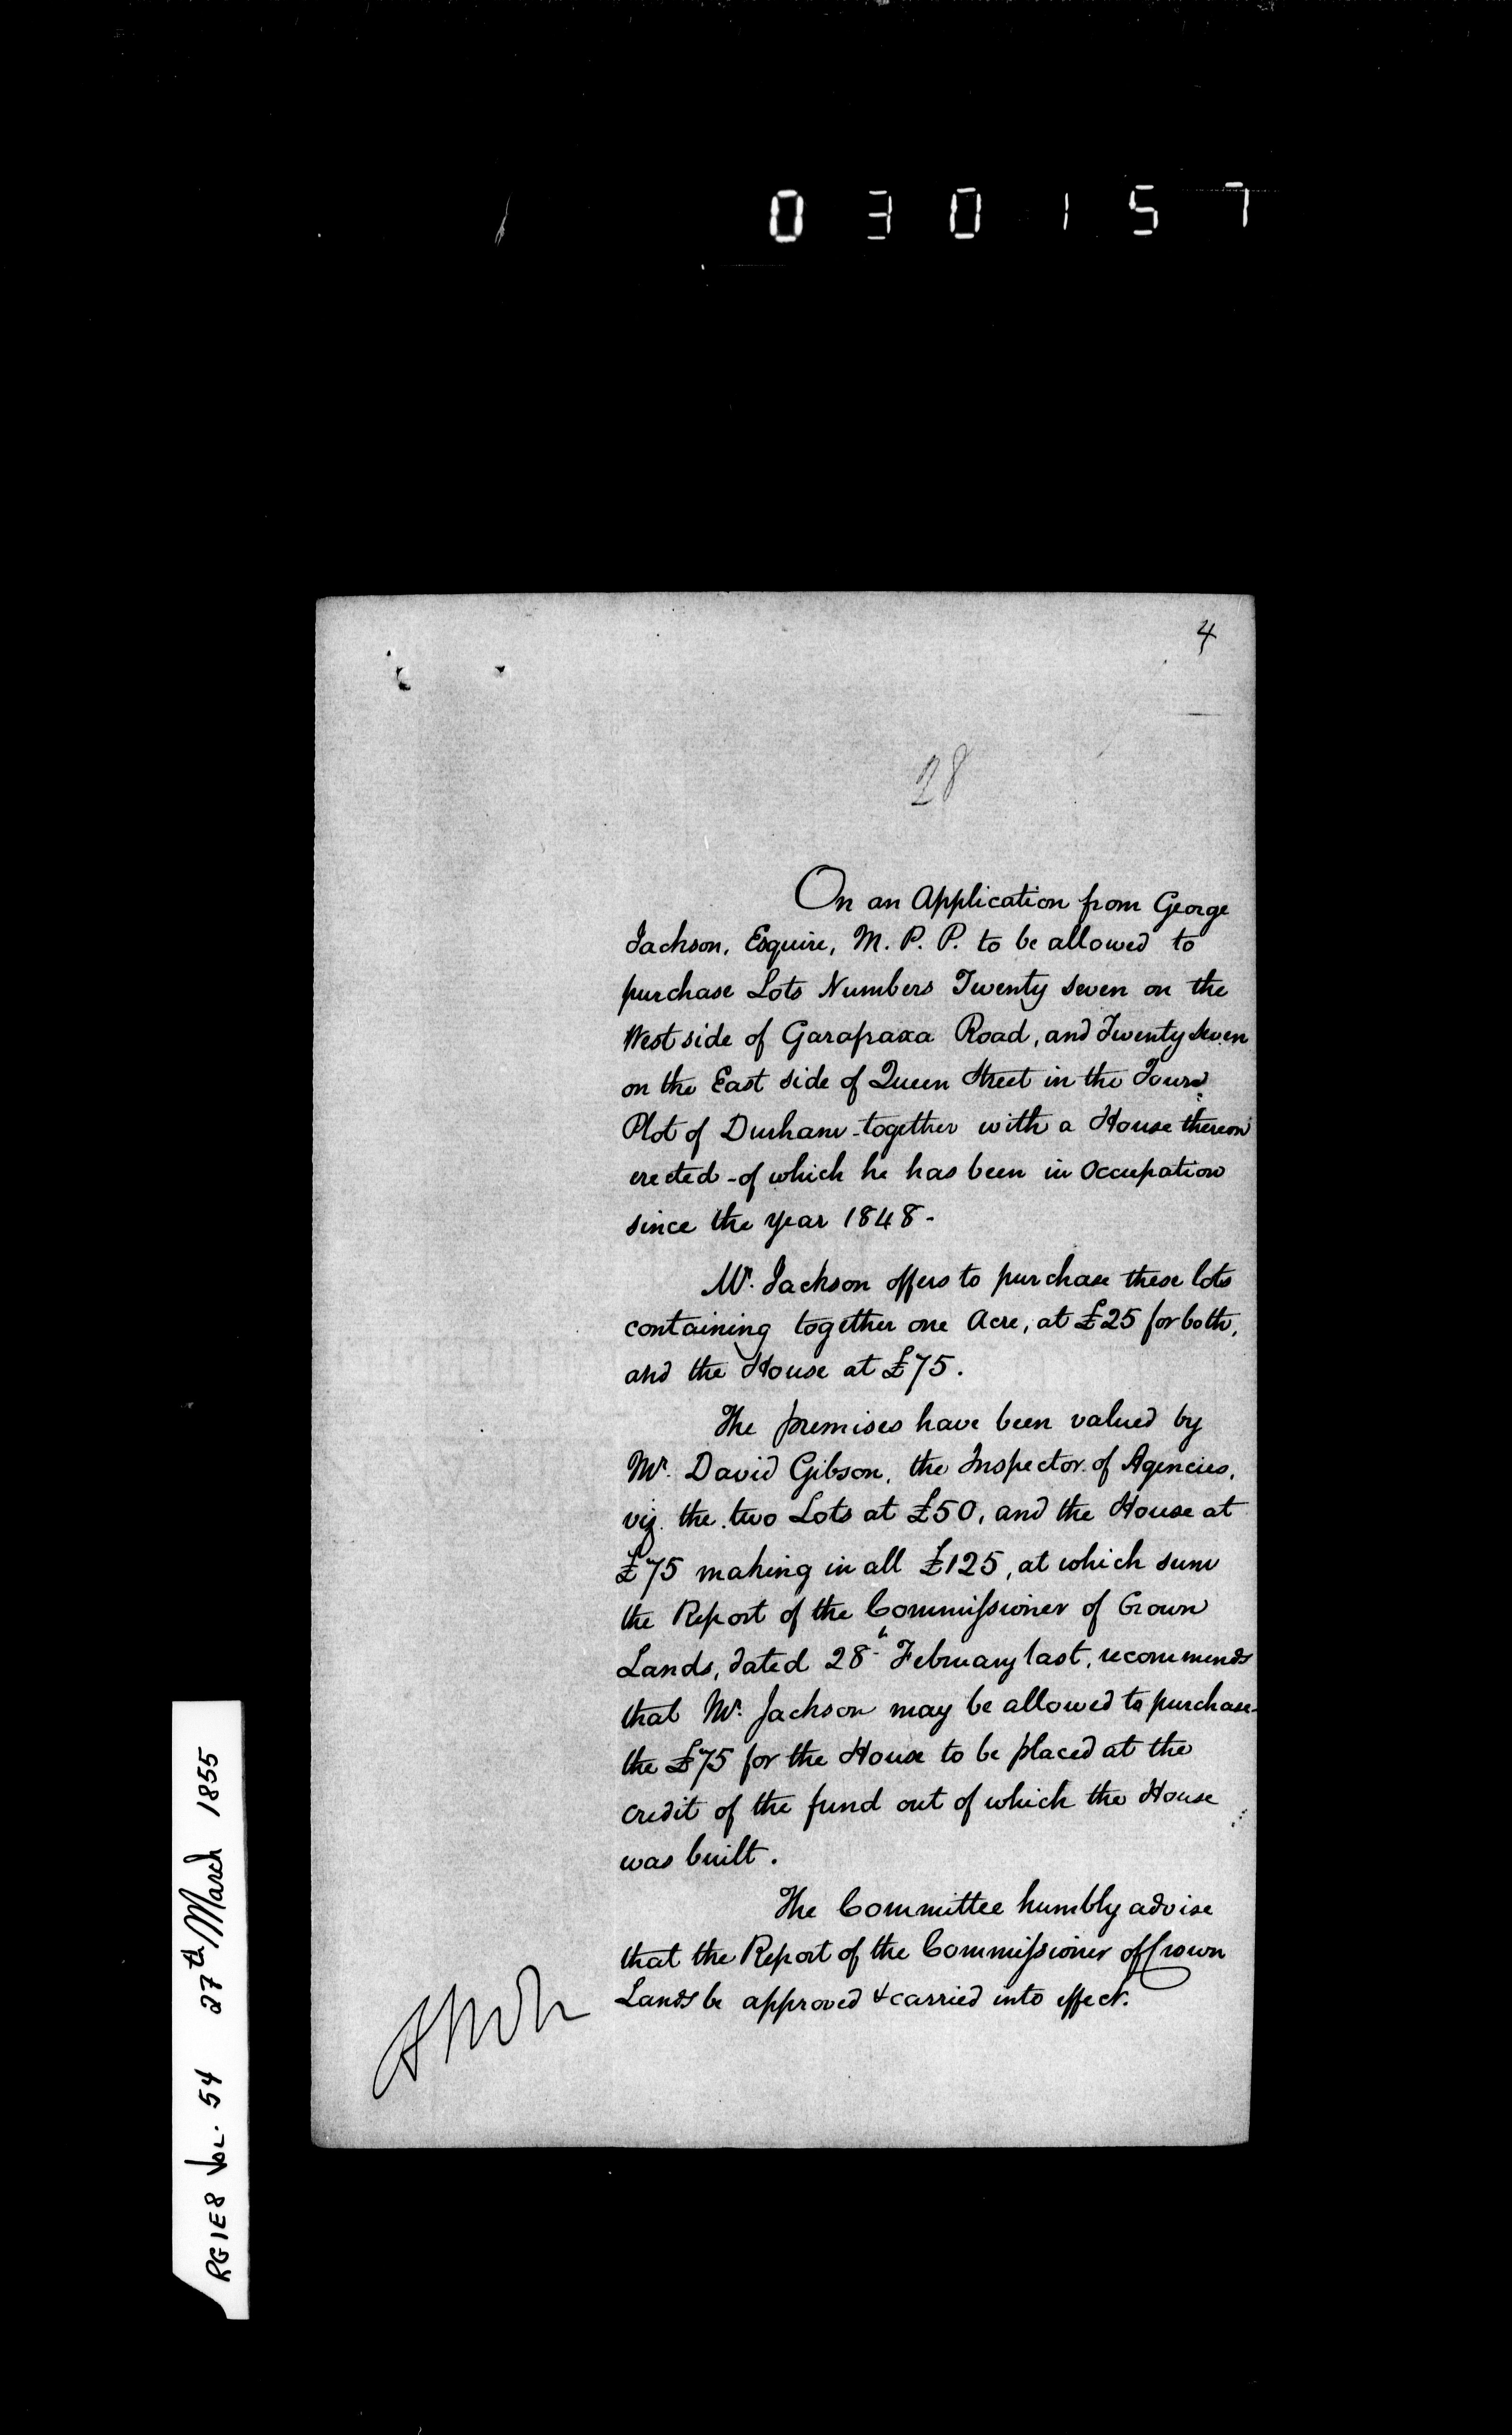 030157
4
28
On an Application from George
Jackson, Esquire, M. P. P. to be allowed to
purchase Lots Numbers Twenty seven on the
West side of Garafraxa Road, and Twenty Seven
on the East side of Queen Street in the Town
Plot of Durham - together with a House thereon
erected - of which he has been in Occupation
since the year 1848 -
Mr. Jackson offers to purchase these lots
containing together one Acre, at £25 for both,
and the House at £75.
The premises have been valued by
Mr. David Gibson, the Inspector of Agencies,
viz. the two Lots at £50, and the House at
£75 making in all £125, at which sum
the Report of the Commissioner of Crown
Lands, dated 28th February last, recommends
that Mr. Jackson may be allowed to purchase -
the £75 for the House to be placed at the
credit of the fund out of which the House
was built.
The Committee humbly advise
that the Report of the Commissioner of Crown
Lands be approved & carried into effect.
RG1E8 Vol. 54 27th March 1855